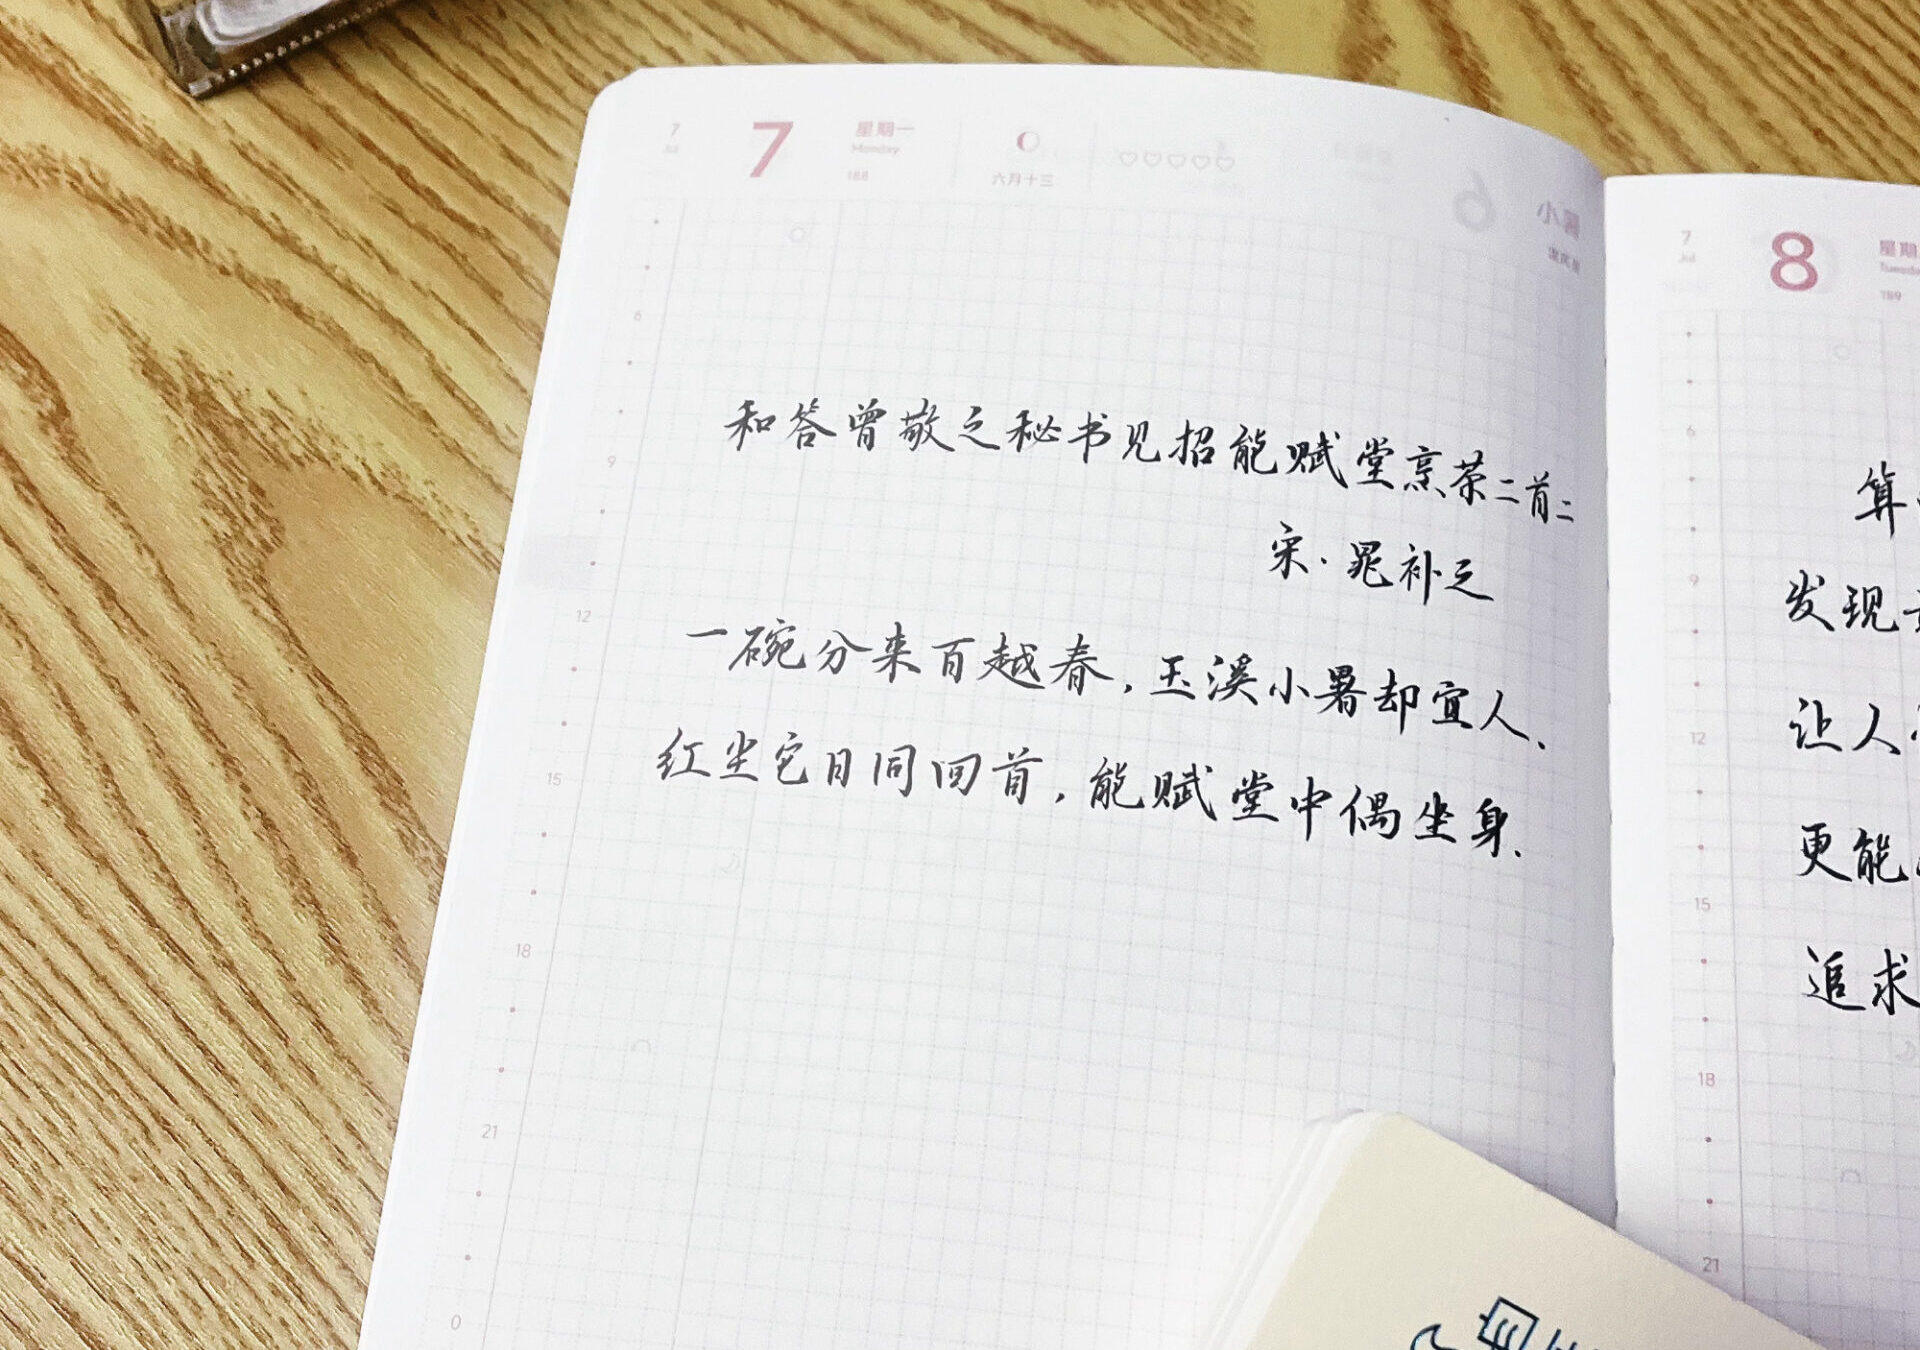 7 7 星期一 六月十三 小暑
Jul Monday
188
6
9
12
15
18
21
0
和答曾敬之秘书见招能赋堂烹茶二首二
宋·晁补之
一碗分来百越春，玉溪小暑却宜人、
红尘它日同回首，能赋堂中偶坐身、
7 8 星期
Jul
189
6
9
12
15
18
21
算
发现
让人
更能
追求